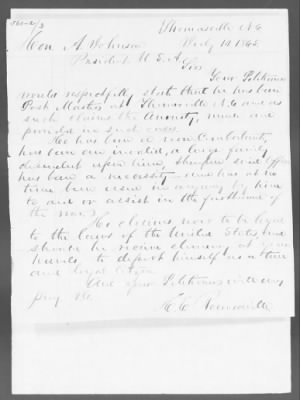 Thomasville N.C.
July 10 1865
Hon. A Johnson
President U.S.A.
Sir
Your Petitioner
would respectfully state that he has been
Post Master at Thomasville N.C. and as
such claims the Amnesty, made and
provided in such cases.
He has been a non Combatant,
has been an invalid, a large family
dependent upon him, therefore said office
has been a necessity, and has at no
time been used in anyway by him
to aid or assist in the furtherance of
the war.
He claims now to be loyal
to the laws of the United States, and
should he receive clemency at your
hands, to deport himself as a true
and loyal citizen
And your Petitioner will ever
pray &c.
Thomasville